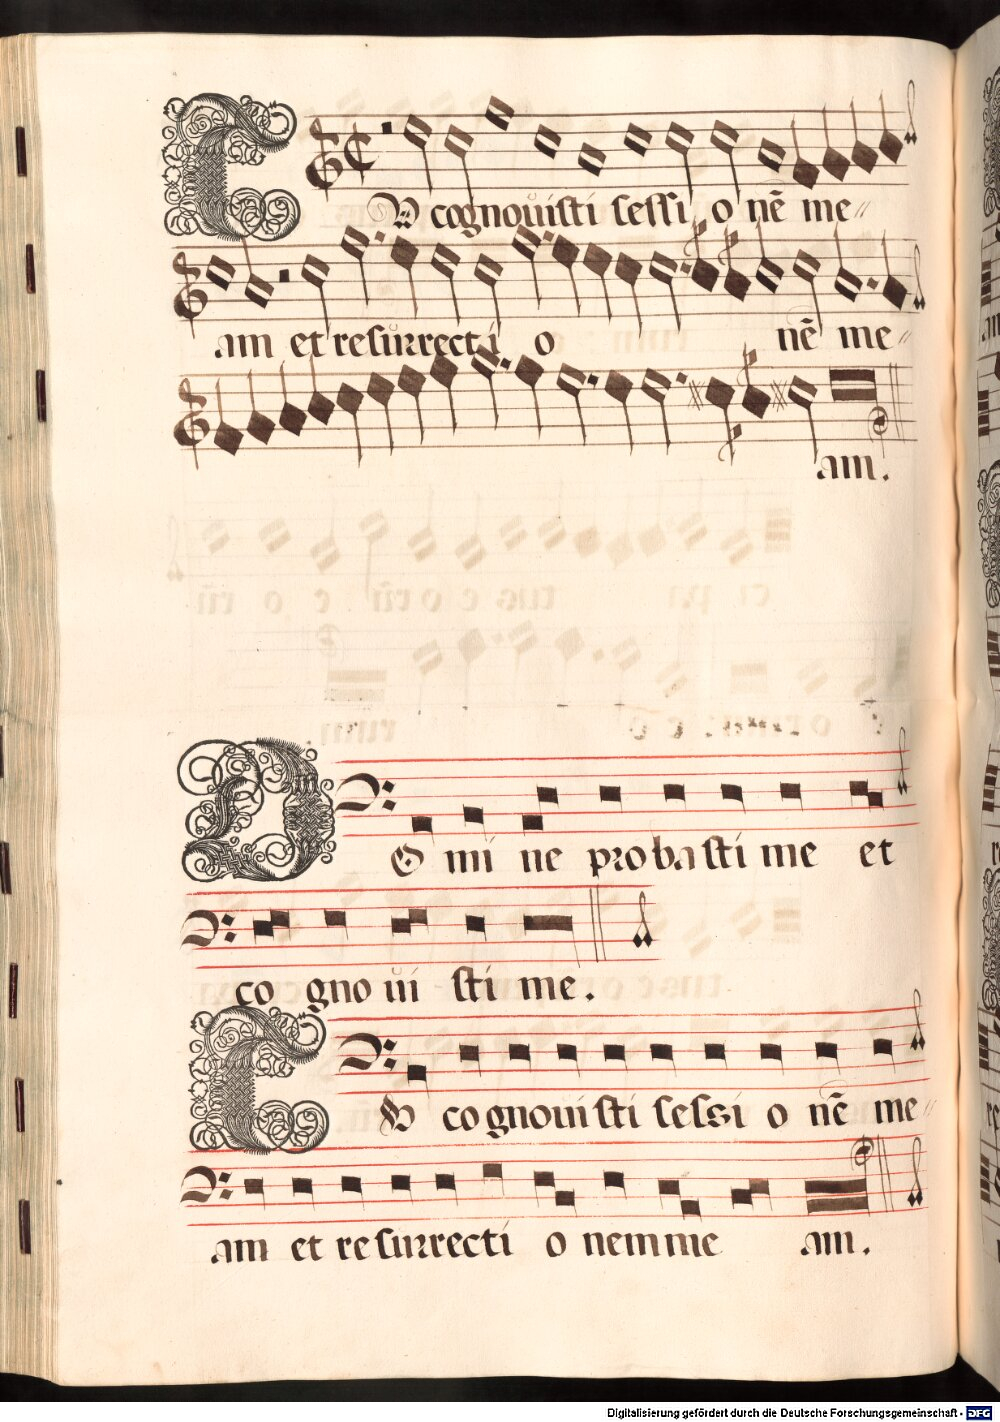 TV cognouisti sessi o nẽ me
am et resurrecti o nẽ me
am.
DO mi ne probasti me et
co gno ui sti me.
TV cognouisti sessi o nẽ me
am et resurrecti o nem me am.
Digitalisierung gefördert durch die Deutsche Forschungsgemeinschaft - DFG